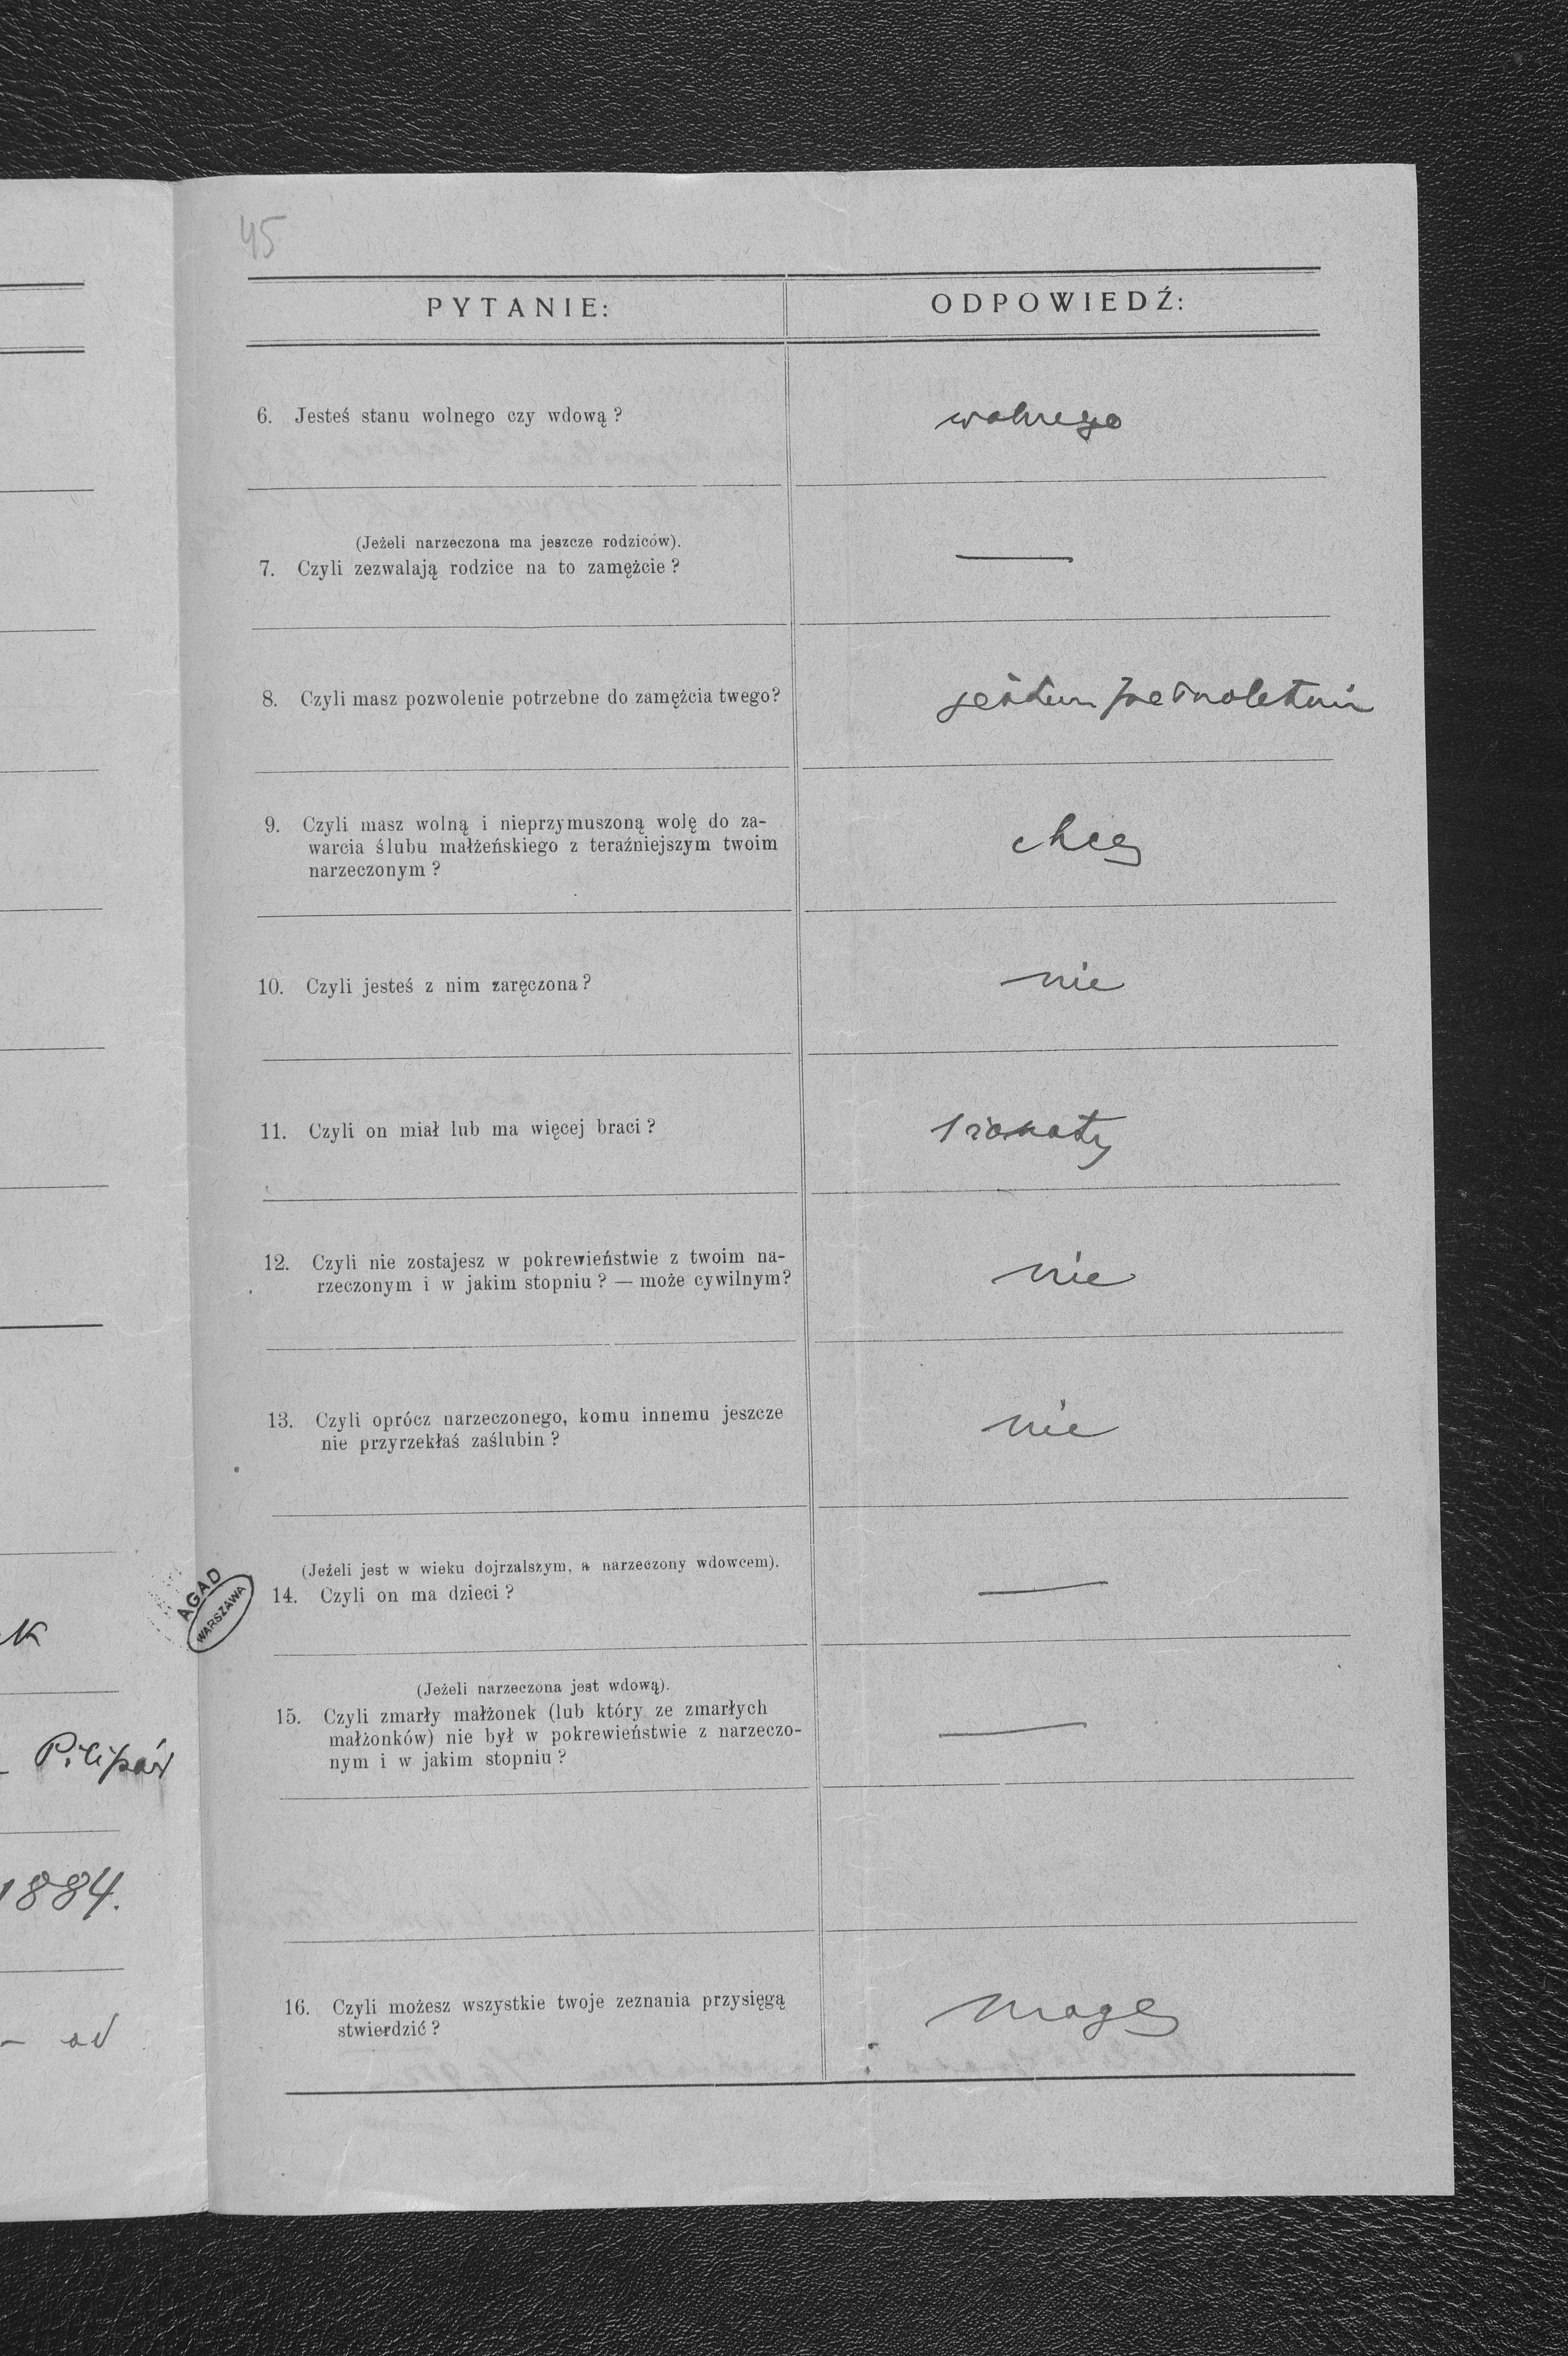 45
PYTANIE:
ODPOWIEDŹ:
6. Jesteś stanu wolnego czy wdową?
wolnego
(Jeżeli narzeczona ma jeszcze rodziców).
7. Czyli zezwalają rodzice na to zamężcie?
—
8. Czyli masz pozwolenie potrzebne do zamężcia twego?
jestem pełnoletnia
9. Czyli masz wolną i nieprzymuszoną wolę do za-
warcia ślubu małżeńskiego z teraźniejszym twoim
narzeczonym?
chcę
10. Czyli jesteś z nim zaręczona?
nie
11. Czyli on miał lub ma więcej braci?
1 żonaty
12. Czyli nie zostajesz w pokrewieństwie z twoim na-
rzeczonym i w jakim stopniu? — może cywilnym?
nie
13. Czyli oprócz narzeczonego, komu innemu jeszcze
nie przyrzekłaś zaślubin?
nie
(Jeżeli jest w wieku dojrzalszym, a narzeczony wdowcem).
14. Czyli on ma dzieci?
—
(Jeżeli narzeczona jest wdową).
15. Czyli zmarły małżonek (lub który ze zmarłych
małżonków) nie był w pokrewieństwie z narzeczo-
nym i w jakim stopniu?
—
16. Czyli możesz wszystkie twoje zeznania przysięgą
stwierdzić?
mogę
AGAD
WARSZAWA
1884.
- od